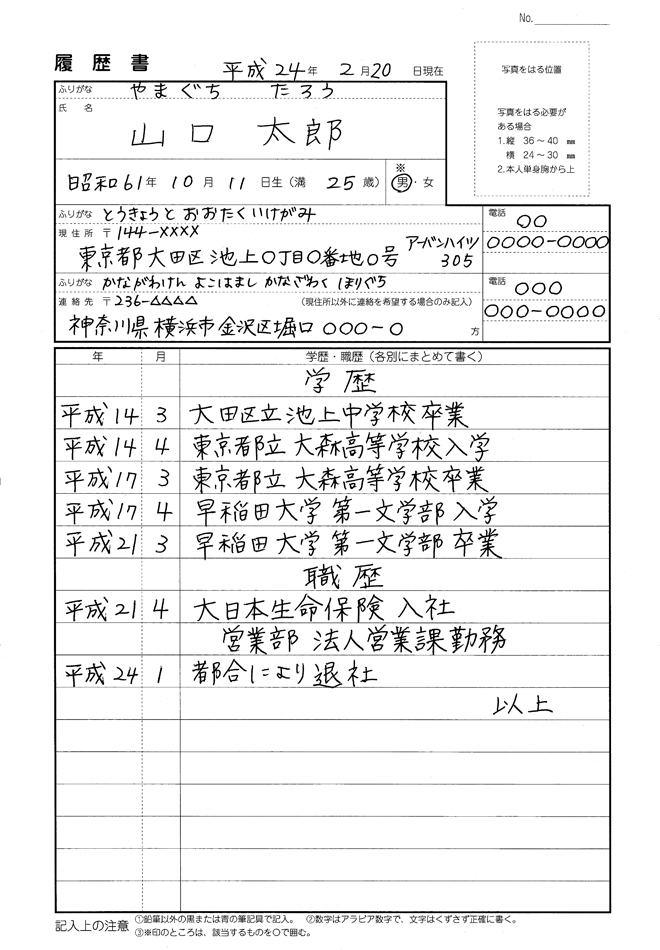 No.
履歴書 平成24年 2月20日現在
写真をはる位置
写真をはる必要が
ある場合
1.縦 36〜40 ㎜
横 24〜30 ㎜
2.本人単身胸から上
ふりがな やまぐち たろう
氏名
山口 太郎
昭和61年 10月 11日生 (満 25歳) ※ 男・女
ふりがな とうきょうと おおたくいけがみ
電話 〇〇
〇〇〇〇-〇〇〇〇
現住所 〒144-××××
東京都大田区池上〇丁目〇番地〇号 アーバンハイツ
305
ふりがな かながわけん よこはまし かなざわく ほりぐち
電話 〇〇〇
〇〇〇-〇〇〇〇
連絡先 〒236-△△△△ (現住所以外に連絡を希望する場合のみ記入)
神奈川県横浜市金沢区堀口 〇〇〇-〇 方
年 月 学歴・職歴 (各別にまとめて書く)
学歴
平成14 3 大田区立池上中学校卒業
平成14 4 東京都立大森高等学校入学
平成17 3 東京都立大森高等学校卒業
平成17 4 早稲田大学 第一文学部 入学
平成21 3 早稲田大学 第一文学部 卒業
職歴
平成21 4 大日本生命保険 入社
営業部 法人営業課勤務
平成24 1 都合により退社
以上
記入上の注意 ①鉛筆以外の黒または青の筆記具で記入。 ②数字はアラビア数字で、文字はくずさず正確に書く。
③※印のところは、該当するものを〇で囲む。